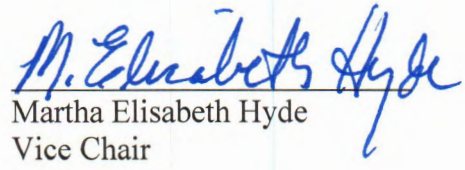 M. Elisabeth Hyde
Martha Elisabeth Hyde
Vice Chair